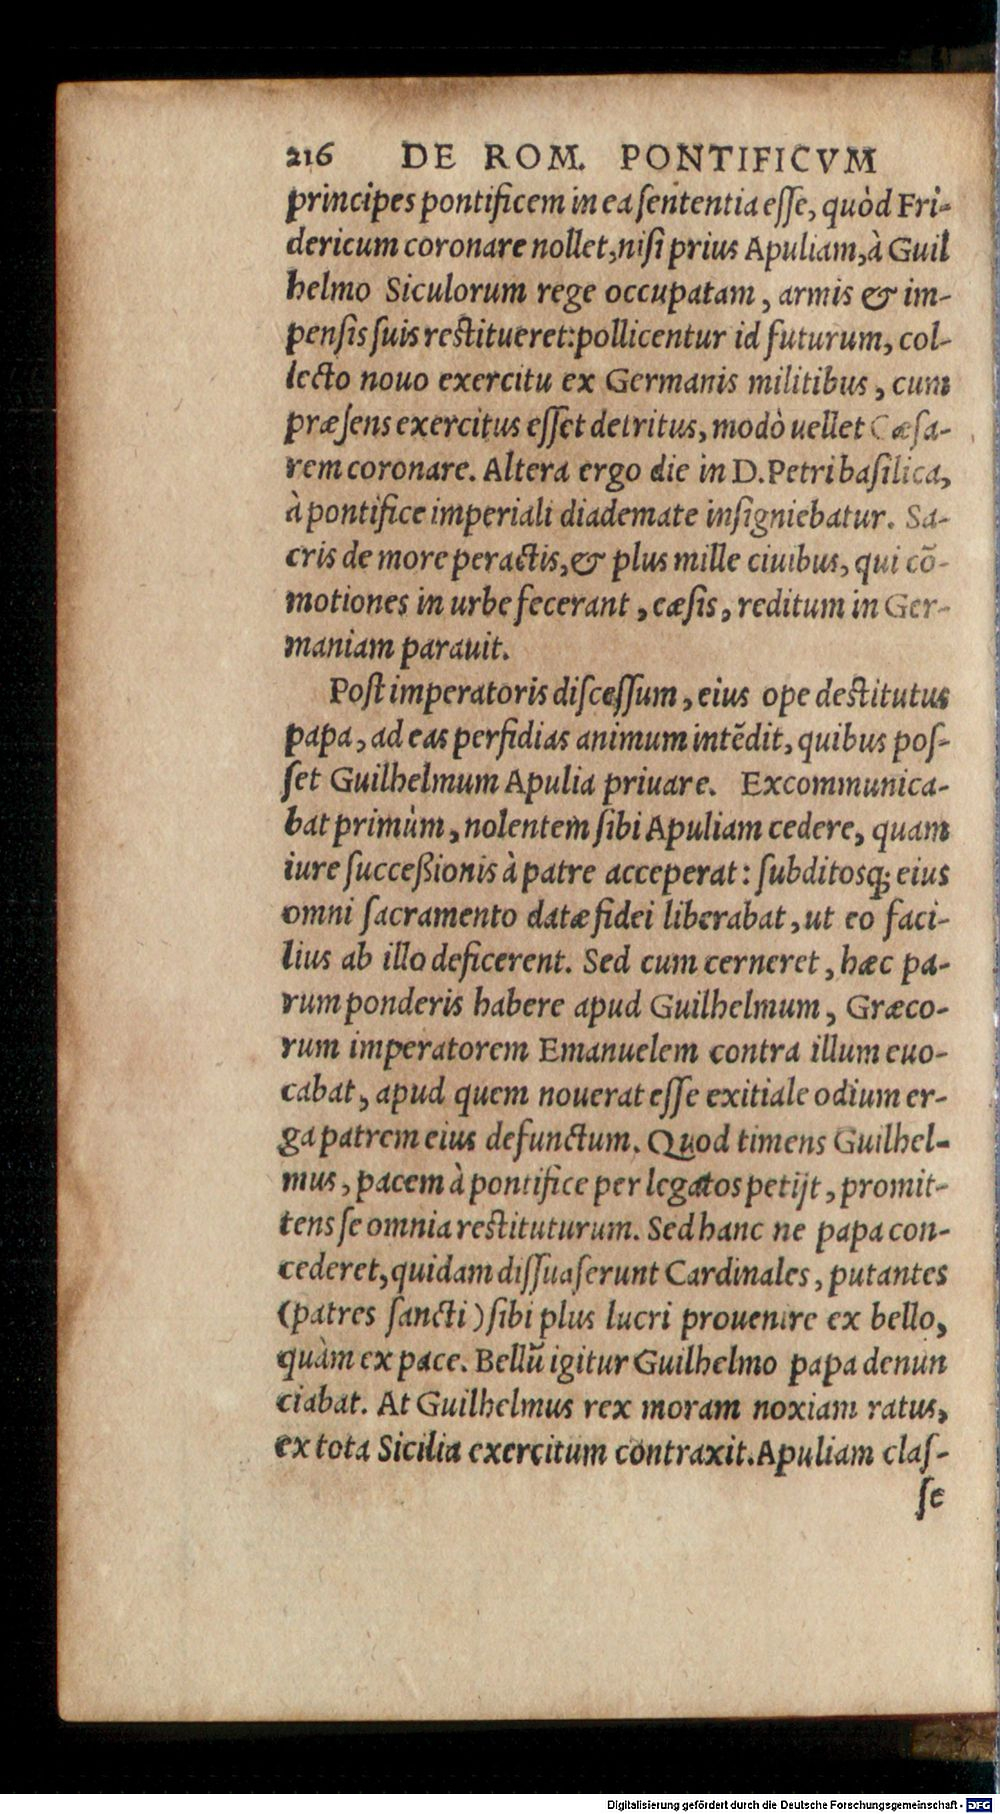 216 DE ROM. PONTIFICVM
principes pontificem in ea sententia esse, quòd Fri-
dericum coronare nollet, nisi prius Apuliam, à Guil
helmo Siculorum rege occupatam, armis & im-
pensis suis restitueret: pollicentur id futurum, col-
lecto nouo exercitu ex Germanis militibus, cum
præsens exercitus esset detritus, modò uellet Cæsa-
rem coronare. Altera ergo die in D. Petri basilica,
à pontifice imperiali diademate insigniebatur. Sa-
cris de more peractis, & plus mille ciuibus, qui cõ-
motiones in urbe fecerant, cæsis, reditum in Ger-
maniam parauit.
Post imperatoris discessum, eius ope destitutus
papa, ad eas perfidias animum intẽdit, quibus pos-
set Guilhelmum Apulia priuare. Excommunica-
bat primùm, nolentem sibi Apuliam cedere, quam
iure succeßionis à patre acceperat: subditosq; eius
omni sacramento datæ fidei liberabat, ut eo faci-
lius ab illo deficerent. Sed cum cerneret, hæc pa-
rum ponderis habere apud Guilhelmum, Græco-
rum imperatorem Emanuelem contra illum euo-
cabat, apud quem nouerat esse exitiale odium er-
ga patrem eius defunctum. Quod timens Guilhel-
mus, pacem à pontifice per legatos petijt, promit-
tens se omnia restituturum. Sed hanc ne papa con-
cederet, quidam dissuaserunt Cardinales, putantes
(patres sancti) sibi plus lucri prouenire ex bello,
quàm ex pace. Bellũ igitur Guilhelmo papa denun
ciabat. At Guilhelmus rex moram noxiam ratus,
ex tota Sicilia exercitum contraxit. Apuliam clas-
se
Digitalisierung gefördert durch die Deutsche Forschungsgemeinschaft - DFG